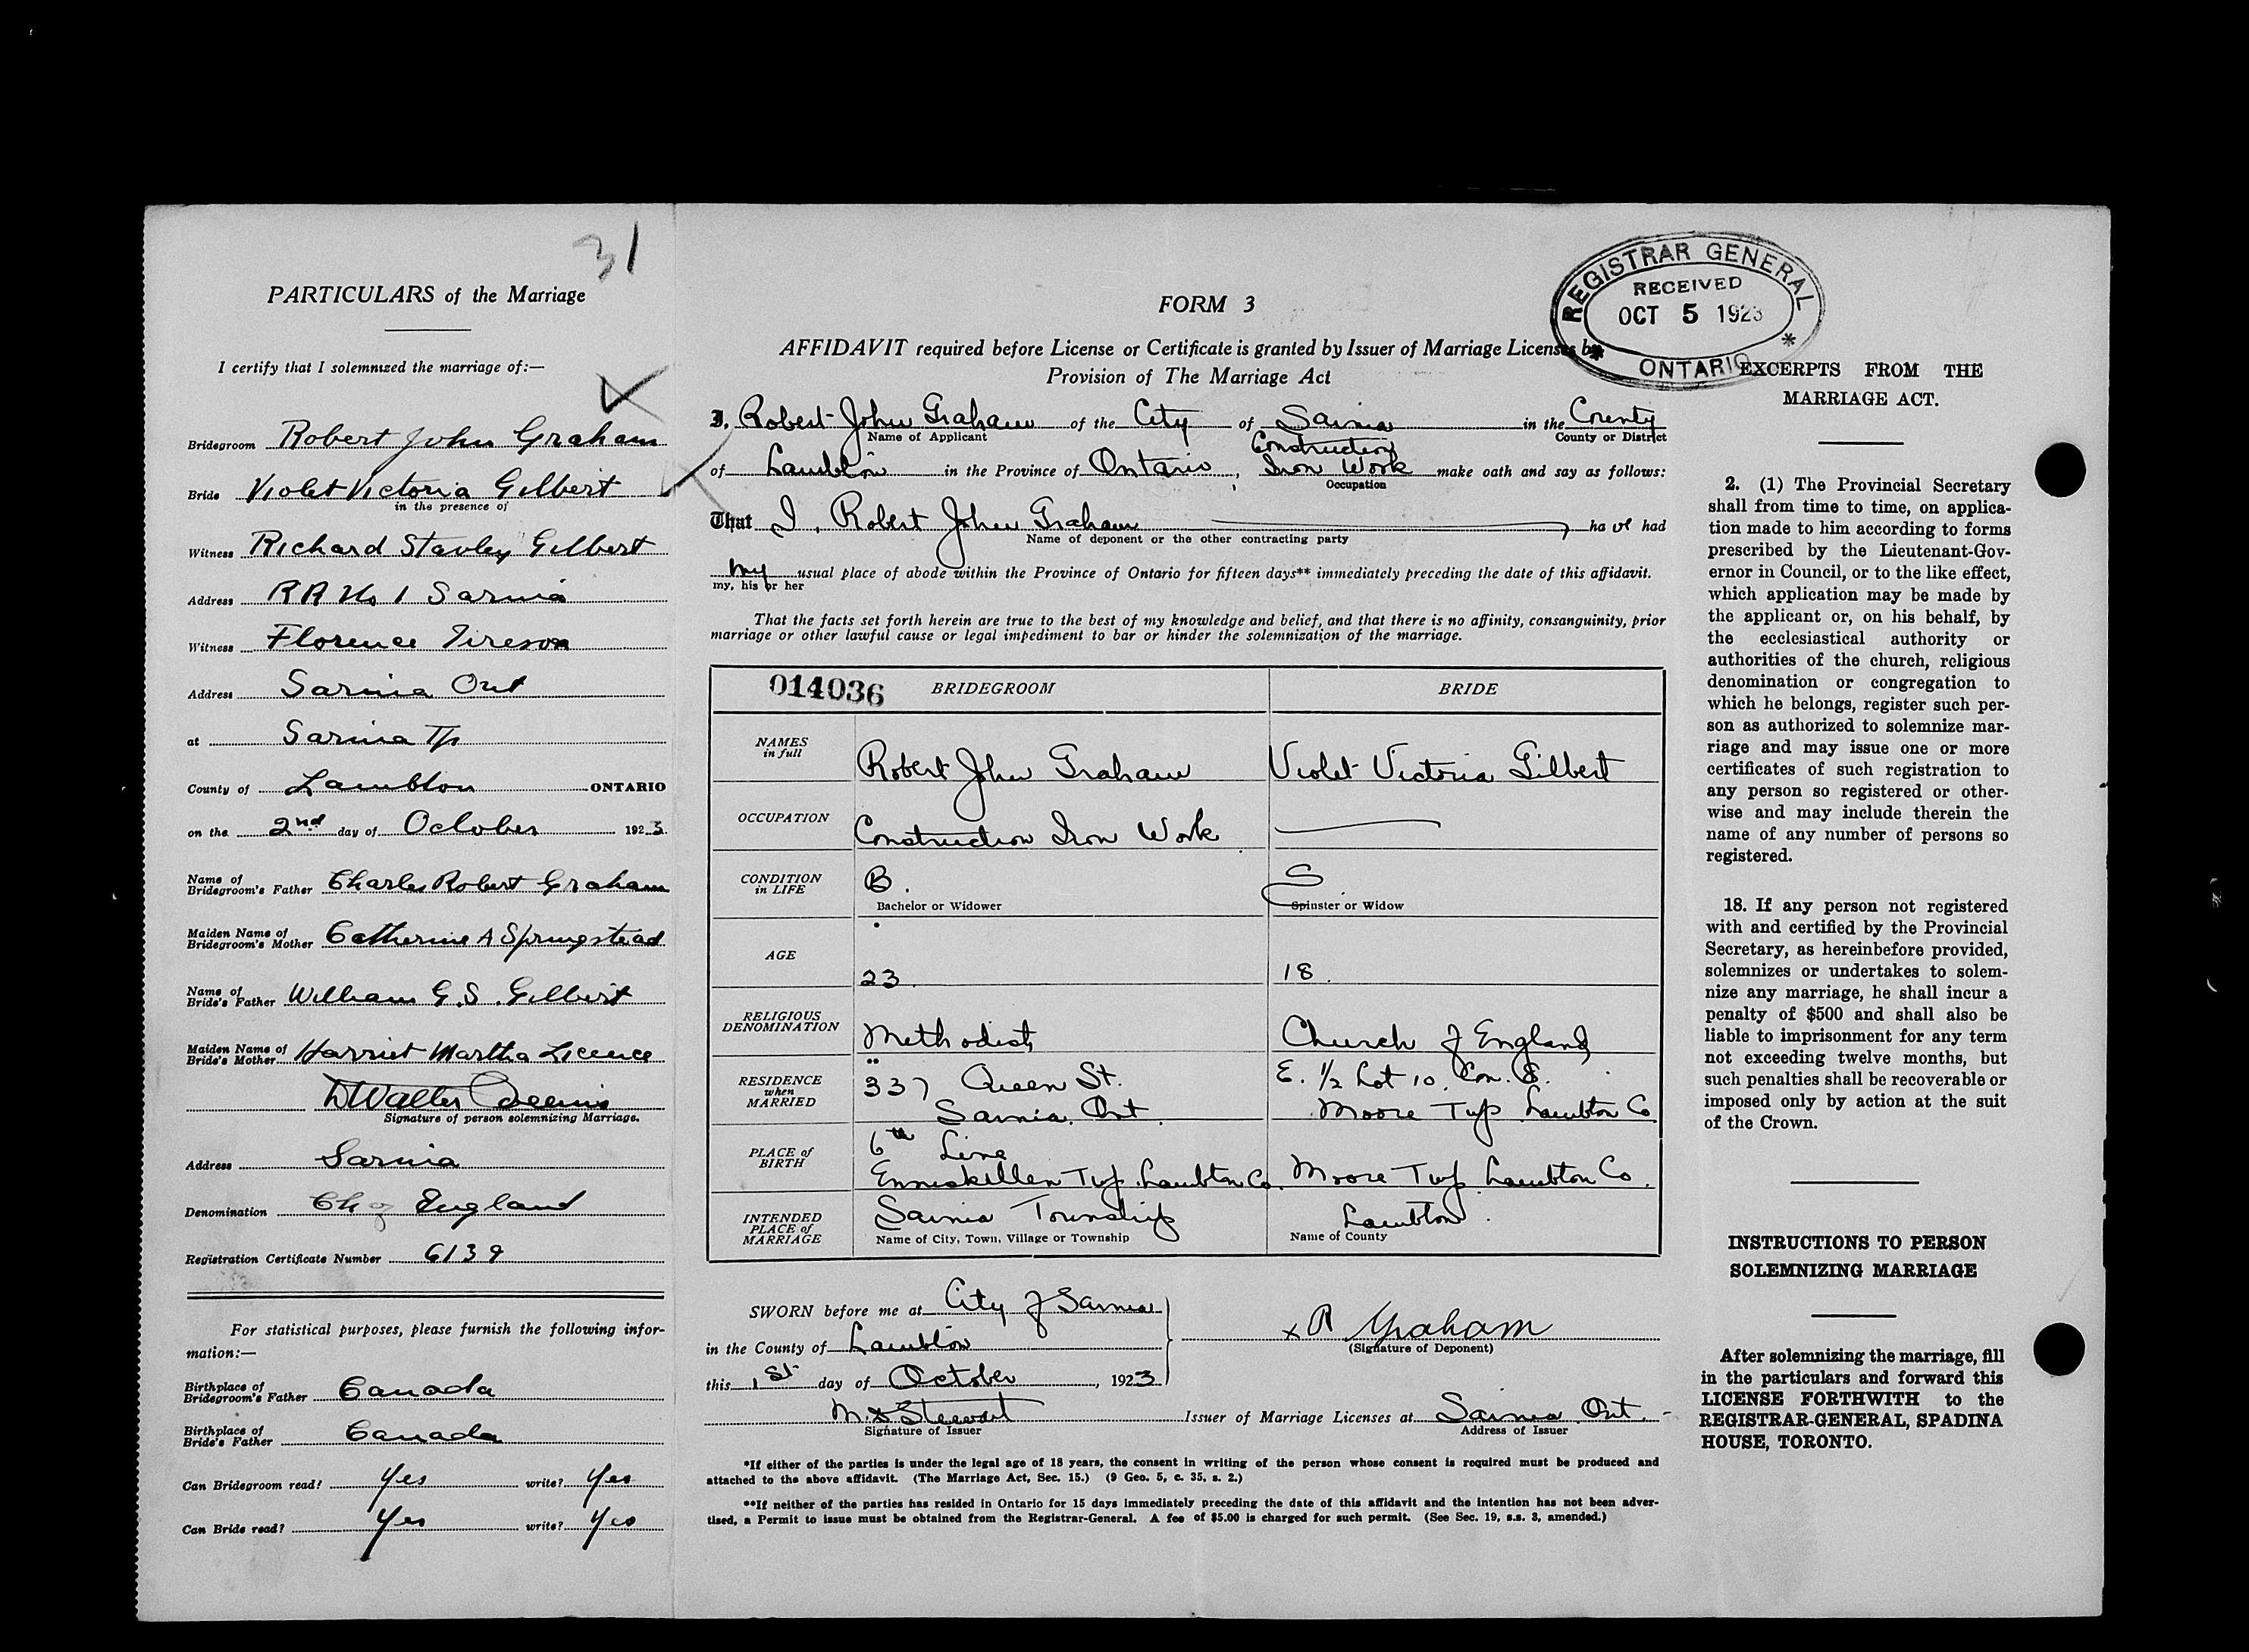 31
PARTICULARS of the Marriage
I certify that I solemnized the marriage of:—
Bridegroom Robert John Graham
Bride Violet Victoria Gilbert
in the presence of
Witness Richard Stanley Gilbert
Address R R No 1 Sarnia
Witness Florence
Address Sarnia Ont
at Sarnia Tp
County of Lambton ONTARIO
on the 2nd day of October 1923
Name of
Bridegroom's Father Charles Robert Graham
Maiden Name of
Bridegroom's Mother Catherine A Springstead
Name of
Bride's Father William G.S. Gilbert
Maiden Name of
Bride's Mother Harriet Martha Licence
Walter
Signature of person solemnizing Marriage.
Address Sarnia
Denomination Ch of England
Registration Certificate Number 6139
For statistical purposes, please furnish the following infor-
mation:—
Birthplace of
Bridegroom's Father Canada
Birthplace of
Bride's Father Canada
Can Bridegroom read? Yes write? Yes
Can Bride read? Yes write? Yes
FORM 3
AFFIDAVIT required before License or Certificate is granted by Issuer of Marriage Licenses by
Provision of The Marriage Act
I, Robert John Graham of the City of Sarnia in the County
Name of Applicant County or District
Construction
of Lambton in the Province of Ontario, Iron Work make oath and say as follows:
Occupation
That I, Robert John Graham ha ve had
Name of deponent or the other contracting party
my usual place of abode within the Province of Ontario for fifteen days** immediately preceding the date of this affidavit.
my, his or her
That the facts set forth herein are true to the best of my knowledge and belief, and that there is no affinity, consanguinity, prior
marriage or other lawful cause or legal impediment to bar or hinder the solemnization of the marriage.
014036 BRIDEGROOM BRIDE
NAMES
in full
Robert John Graham Violet Victoria Gilbert
OCCUPATION
Construction Iron Work
CONDITION
in LIFE
B. S
Bachelor or Widower Spinster or Widow
AGE
23 18
RELIGIOUS
DENOMINATION
Methodist Church of England
RESIDENCE
when
MARRIED
337 Queen St. E. ½ Lot 10. Con. 8.
Sarnia. Ont. Moore Twp Lambton Co
PLACE of
BIRTH
6th Line
Enniskillen Twp. Lambton Co. Moore Twp Lambton Co.
INTENDED
PLACE of
MARRIAGE
Sarnia Township Lambton.
Name of City, Town, Village or Township Name of County
SWORN before me at City of Sarnia
in the County of Lambton
this 1st day of October, 1923
x R Graham
(Signature of Deponent)
Stewart Issuer of Marriage Licenses at Sarnia Ont.
Signature of Issuer Address of Issuer
*If either of the parties is under the legal age of 18 years, the consent in writing of the person whose consent is required must be produced and
attached to the above affidavit. (The Marriage Act, Sec. 15.) (9 Geo. 5, c. 35, s. 2.)
**If neither of the parties has resided in Ontario for 15 days immediately preceding the date of this affidavit and the intention has not been adver-
tised, a Permit to issue must be obtained from the Registrar-General. A fee of $5.00 is charged for such permit. (See Sec. 19, s.s. 3, amended.)
REGISTRAR GENERAL
RECEIVED
OCT 5 1923
* ONTARIO *
EXCERPTS FROM THE
MARRIAGE ACT.
2. (1) The Provincial Secretary
shall from time to time, on applica-
tion made to him according to forms
prescribed by the Lieutenant-Gov-
ernor in Council, or to the like effect,
which application may be made by
the applicant or, on his behalf, by
the ecclesiastical authority or
authorities of the church, religious
denomination or congregation to
which he belongs, register such per-
son as authorized to solemnize mar-
riage and may issue one or more
certificates of such registration to
any person so registered or other-
wise and may include therein the
name of any number of persons so
registered.
18. If any person not registered
with and certified by the Provincial
Secretary, as hereinbefore provided,
solemnizes or undertakes to solem-
nize any marriage, he shall incur a
penalty of $500 and shall also be
liable to imprisonment for any term
not exceeding twelve months, but
such penalties shall be recoverable or
imposed only by action at the suit
of the Crown.
INSTRUCTIONS TO PERSON
SOLEMNIZING MARRIAGE
After solemnizing the marriage, fill
in the particulars and forward this
LICENSE FORTHWITH to the
REGISTRAR-GENERAL, SPADINA
HOUSE, TORONTO.